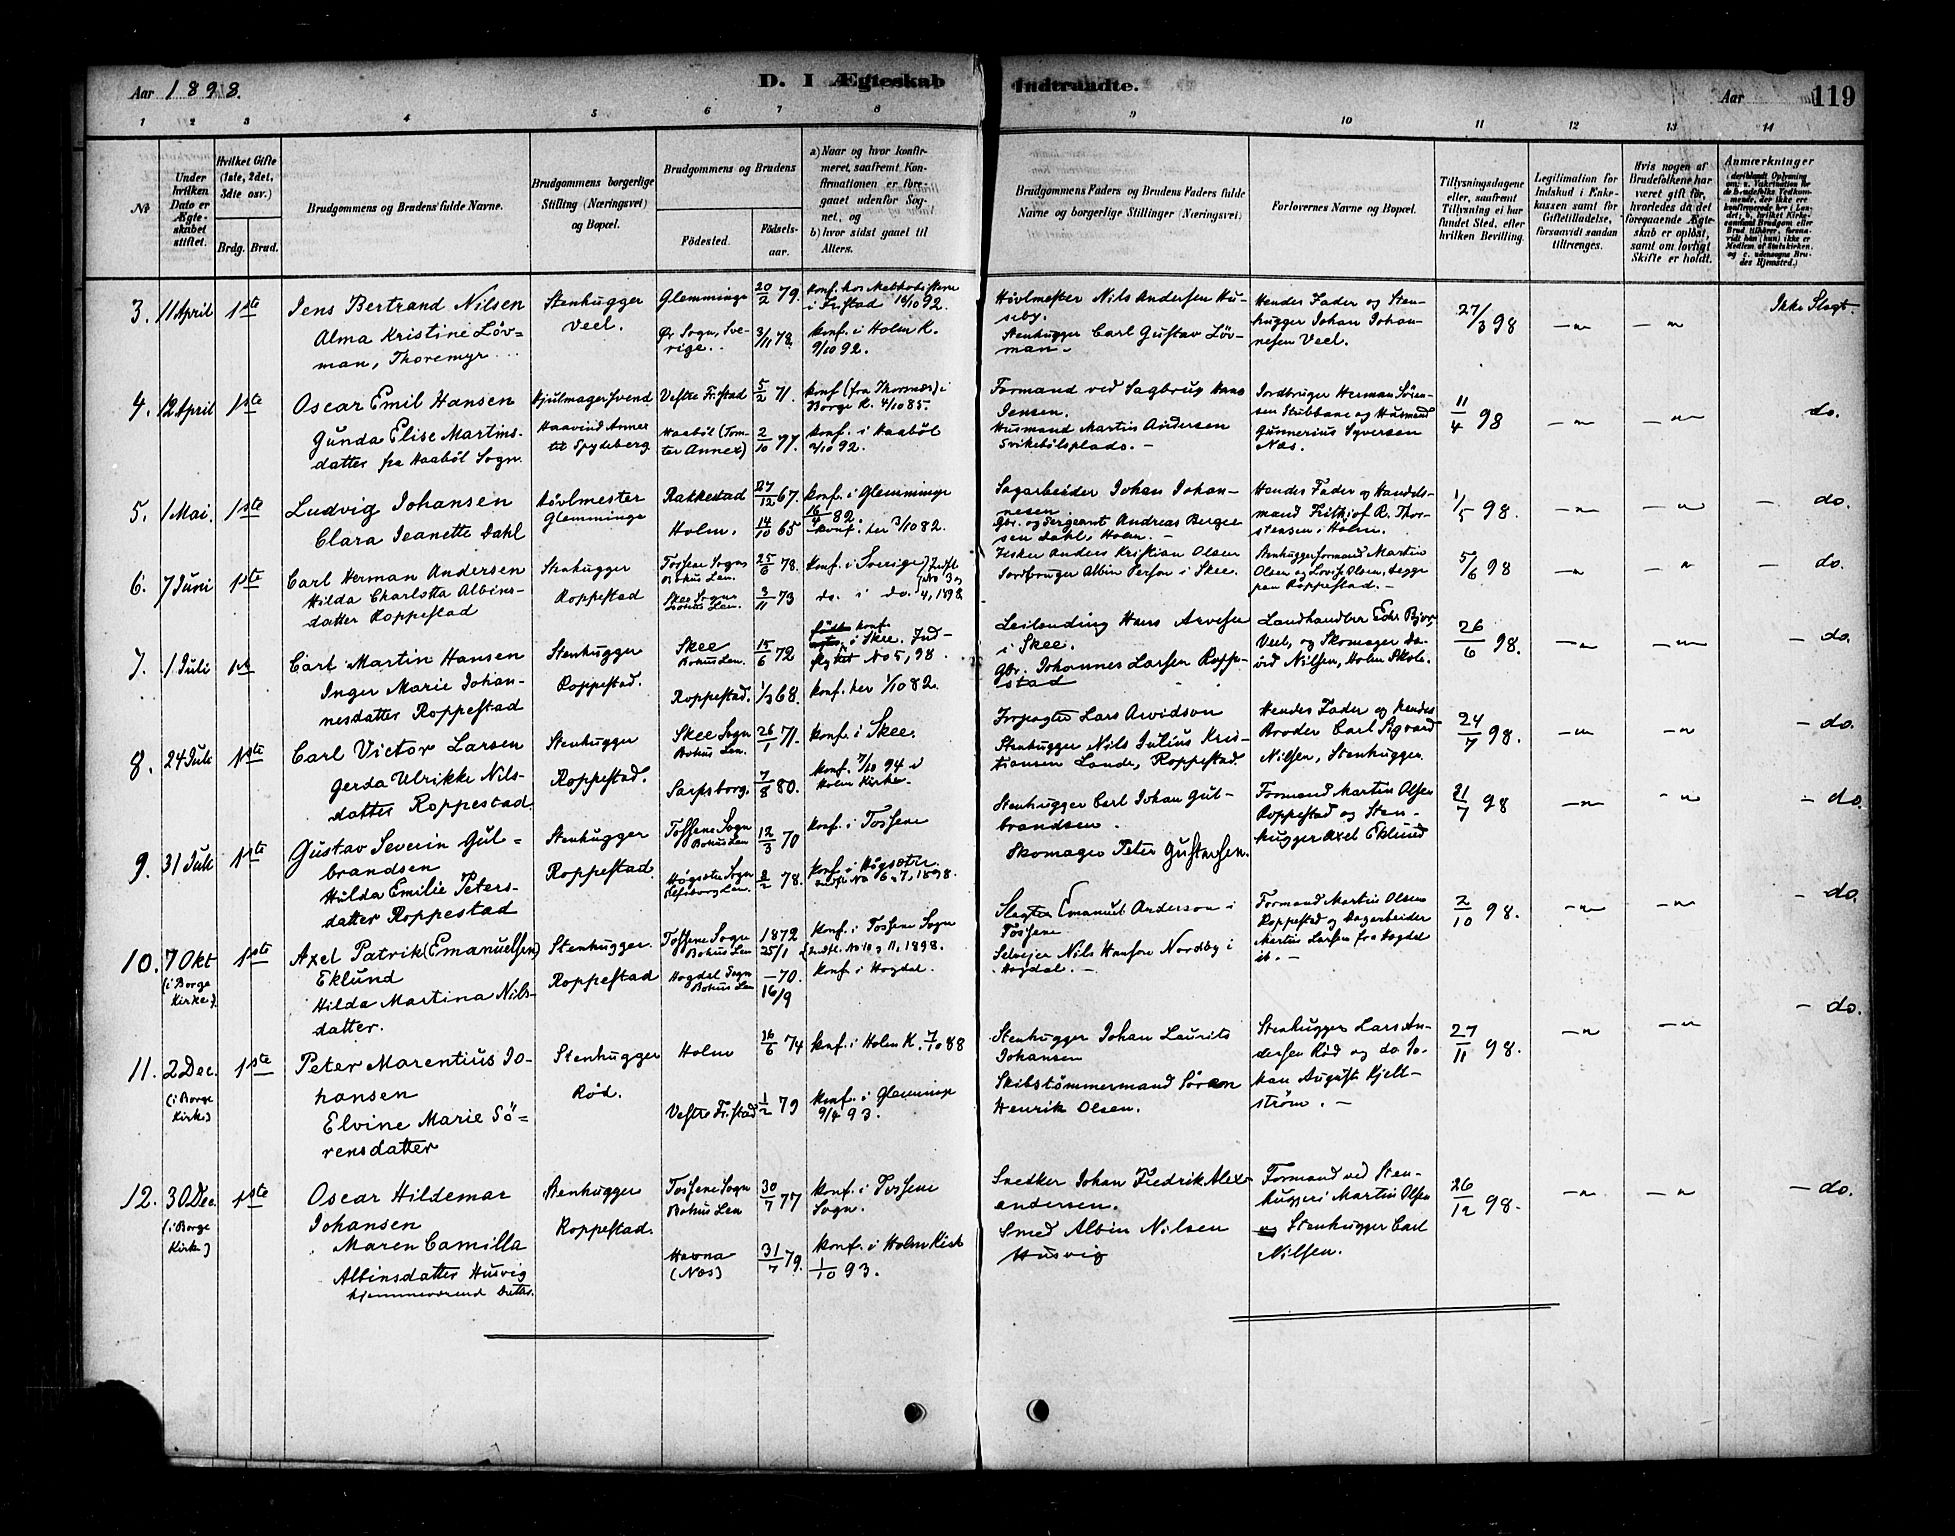 Aar 1898.
D. I Ægteskab Indtraadte.
Aar 119
1 2 3 4 5 6 7 8 9 10 11 12 13 14
No
Under hvilken Dato er Ægteskabet stiftet.
Hvilket Gifte (1ste, 2det, 3die osv.)
Brdg. Brud.
Brudgommens og Brudens fulde Navne.
Brudgommens borgerlige Stilling (Næringsvei) og Bopæl.
Brudgommens og Brudens
Fødested.
Fødselsaar.
a) Naar og hvor konfirmeret, saafremt Konfirmationen er foregaaet udenfor Sognet, og
b) hvor sidst gaaet til Alters.
Brudgommens Faders og Brudens Faders fulde Navne og borgerlige Stillinger (Næringsvei)
Forlovernes Navne og Bopæl.
Tillysningsdagene eller, saafremt Tillysning ei har fundet Sted, efter hvilken Bevilling.
Legitimation for Indskud i Enkekassen samt for Giftetilladelse, forsaavidt saadan tiltrænges.
Hvis nogen af Brudefolkene har været gift før, hvorledes da det foregaaende Ægteskab er opløst, samt om lovligt Skifte er holdt.
Anmærkninger
3. 11 April 1ste
Jens Bertrand Nilsen
Alma Kristine Löv-
man, Thoremyr
Stenhugger
Veel.
Glemminge 20/2 79.
Sogn, Sve-
rige. 3/11 78.
konf. hos Methodisterne
i Fr.stad 16/10 92.
konf. i Holm K.
9/10 92.
Hövlmester Nils Andersen Hu-
seby.
Stenhugger Carl Gustav Löv-
man
Hendes Fader og Sten-
hugger Johan Johan-
nesen Veel.
27/3 98
Ikke Slagt.
4. 12 April 1ste
Oscar Emil Hansen
Gunda Elise Martins-
datter fra Haaböl Sogn
Hjulmagersvend
til Spydeberg
Vestre Fr.stad 5/2 71.
Haaböl (Tom-
ter Annex) 2/10 77.
konf. (fra Thorsnæs) i
Borge K. 4/10 85.
konf. i Haaböl
2/10 92.
Formand ved Sagbrug Hans
Jensen.
Husmand Martin Andersen
Svikebölsplads.
Jordbruger Herman Sören-
sen Stubbane og Husmand
Gunnerius Syversen
Næs.
11/4 98
do.
5. 1 Mai. 1ste
Ludvig Johansen
Clara Jeanette Dahl
Hövlmester
Glemminge
Rakkestad 27/12 67.
Holm. 14/10 65
konf. i Glemminge
16/4 82.
konf. her 1/10 82.
Sagarbeider Johan Johan-
nesen
Gbr. og Sergeant Andreas Berge-
sen Dahl, Holm.
Hendes Fader og Handels-
mand Frithjof R. Thor-
stensen i Holm.
1/5 98.
do.
6. 7 Juni 1ste
Carl Herman Andersen
Hilda Charlotta Albins-
datter Roppestad
Stenhugger
Roppestad
Tossene Sogn
Bohus Len. 25/6 78.
Skee Sogn
Bohus Len. 3/11 73
konf. i Sverige
do. i do. 4, 1898.
Fisker Anders Kristian Olsen
Jordbruger Albin Person i Skee.
Stenhuggerformand Martin
Olsen og Lovise Olsen, begge
paa Roppestad.
5/6 98
do.
7. 1 Juli 1st
Carl Martin Hansen
Inger Marie Johan-
nesdatter Roppestad
Stenhugger
Roppestad.
Skee
Bohus Len. 15/6 72
Roppestad. 1/3 68.
konf.
i Skee. Ind-
flyttet No 5, 98.
konf. her 1/10 82.
Leilending Hans Arvesen
i Skee.
Gbr. Johannes Larsen Roppe-
stad
Landhandler Edv. Bjor,
Veel, og Skomager Da-
vid Nilsen, Holm Skole.
26/6 98.
do.
8. 24 Juli 1ste
Carl Victor Larsen
Gerda Ulrikke Nils-
datter Roppestad
Stenhugger
Roppestad.
Skee Sogn
Bohus Len. 26/1 71.
Sarpsborg. 7/8 80.
konf. i Skee.
konf. 7/10 94 i
Holm Kirke.
Forpagter Lars Arvidson
Stenhugger Nils Julius Kris-
tiansen Lande, Roppestad
Hendes Fader og hendes
Broder Carl Sigvard
Nilsen, Stenhugger
24/7 98.
do.
9. 31 Juli 1ste
Gustav Severin Gul-
brandsen
Hulda Emilie Peters-
datter Roppestad
Stenhugger
Roppestad.
Tossene Sogn
Bohus Len 12/3 70
Högsäter Sogn
Elfsborg Len. 8/2 78.
konf. i Tossene
konf. i Högsäter.
indfl. No 6, 7, 1898.
Stenhugger Carl Johan Gul-
brandsen.
Skomager Peter Gustavsen.
Formand Martin Olsen
Roppestad og Sten-
hugger Axel Eklund
31/7 98
do.
10. 7 Okt 1ste
(i Borge
Kirke)
Axel Patrik (Emanuelsen)
Eklund
Hilda Martina Nils-
datter.
Stenhugger.
Roppestad
Tossene Sogn
Bohus Len 1872 25/1
Hogdal Sogn
Bohus Len -70. 16/9
konf. i Tossene Sogn
Indfl. No 10 og 11, 1898.
konf. i Hogdal.
Slagter Emanuel Anderson i
Tossene
Selveier Nils Hansen Nordby i
Hogdal.
Formand Martin Olsen
Roppestad og Sagarbeider
Martin Larsen fra Hogdal
2/10 98.
do.
11. 2 Dec. 1ste
(i Borge
Kirke)
Peter Marentius Jo-
hansen
Elvine Marie Sö-
rensdatter
Stenhugger
Röd.
Holm 16/6 74
Vestre Fr.stad 1/2 79
konf. i Holm K. 7/10 88
konf. i Glemminge
9/4 93.
Stenhugger Johan Laurits
Johansen
Skibstömmermand Sören
Henrik Olsen.
Stenhugger Lars An-
dersen Röd og do Jo-
han August Kjell-
ström.
27/11 98.
do.
12. 30 Dec. 1ste
(i Borge
Kirke)
Oscar Hildemar
Johansen
Maren Camilla
Albinsdatter Husvig
hjemmeværend Datter.
Stenhugger
Roppestad.
Tossene Sogn
Bohus Len 30/7 77
Havna
(Næs) 31/7 79.
konf. i Tossene
Sogn.
konf. i Holm Kirk
1/10 93.
Snedker Johan Fredrik Alex-
andersen.
Smed Albin Nilsen
Husvig
Formand ved Sten-
huggeri Martin Olsen
og Stenhugger Carl
Nilsen.
26/12 98.
do.